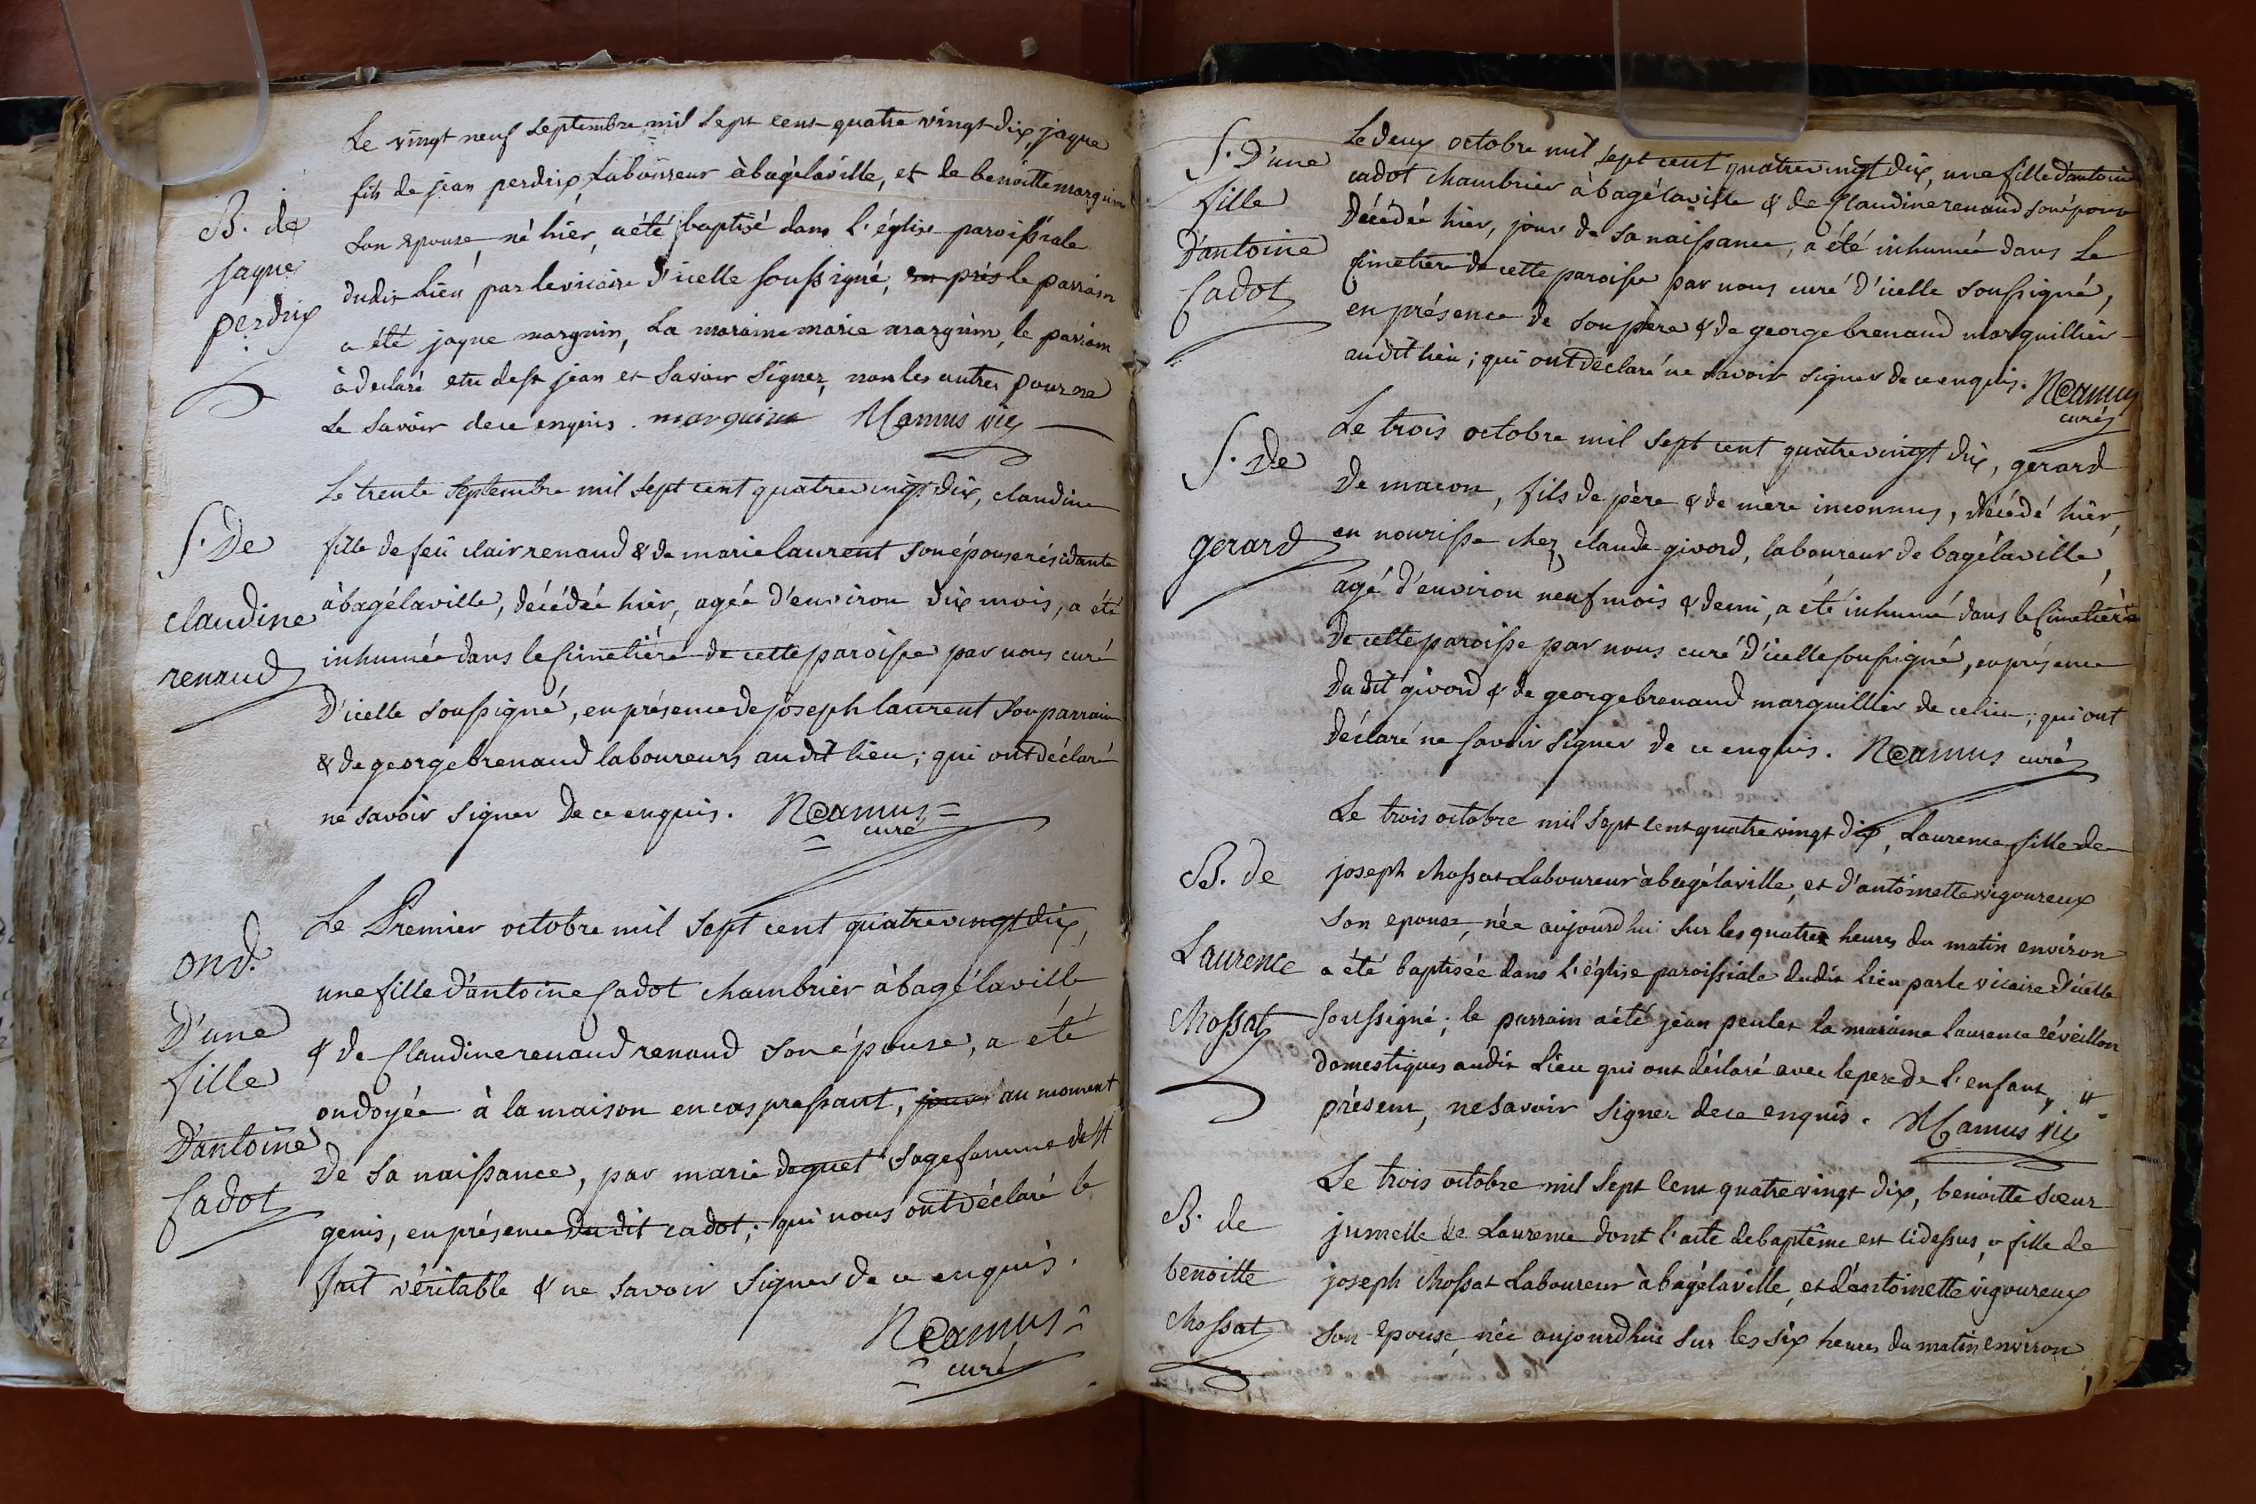 B. de
jaque
perdrix
Le vingt neuf septembre mil sept cent quatre vingt dix, jaque
fils de jean perdrix Laboureur à bagélaville, et de benoitte marguin
son epouse, né hier, a été baptisé dans l'église paroissiale
dudit Lieu par le vicaire d'icelle soussigné, le parrain
a été jaque marguin, La maraine marie marguin, le parrain
à declaré etre de st jean et savoir signer, non les autres pour ne
le savoir de ce enquis. marguin NCamus vic
S. De
claudine
renaud
Le trente septembre mil sept cent quatrevingt dix, claudine
fille de feü clair renaud & de marie laurent son épouse résidante
à bagélaville, décédée hier, agée d'environ dix mois, a été
inhumée dans le Cimetiére de cette paroisse par nous curé
D'icelle soussigné, en présence de joseph laurent son parrain
& de george brenaud laboureurs au dit lieu; qui ont déclaré
ne savoir signer de ce enquis. NCamus
curé
ond.
D'une
fille
D'antoine
Cadot
Le Premier octobre mil sept cent quatrevingt dix,
une fille d'antoine Cadot chambrier à bagélaville
& de Claudine renaud renaud son épouse, a été
ondoyée à la maison en cas pressant, jour au moment
de sa naissance, par marie deguet sagefemme de st
genis, en présence du dit cadot; qui nous ont déclaré le
fait véritable & ne savoir signer de ce enquis.
NCamus
curé
S. D'une
fille
D'antoine
Cadot
Le deux octobre mil sept cent quatrevingt dix, une fille d'antoine
cadot chambrier à bagélaville & de Claudine renaud son épouse
décédée hier, jour de sa naissance, a été inhumée dans le
cimetiére de cette paroisse par nous curé d'icelle soussigné,
en présence de son père & de george brenaud marguillier
au dit lieu; qui ont déclaré ne savoir signer de ce enquis. NCamus
curé
S. De
gerard
Le trois octobre mil sept cent quatrevingt dix, gerard
de macon, fils de père & de mère inconnus, décédé hier,
en nourisse chez claude givord, laboureur de bagélaville,
agé d'environ neuf mois & demi, a été inhumé dans le Cimetiére
de cette paroisse par nous curé d'icelle soussigné, en présence
du dit givord & de george brenaud marguillier de ce lieu; qui ont
déclaré ne savoir signer de ce enquis. NCamus curé
B. de
Laurence
Chossat
Le trois octobre mil sept cent quatre vingt dix, Laurence fille de
joseph Chossat Laboureur à bagélaville, et d'antoinette vigoureux
son epouse, née aujourdhui sur les quatre heures du matin environ
a été baptisée dans l'église paroissiale dudit lieu par le vicaire d'icelle
soussigné; le parrain a été jean peulet la maraine laurence réveillon
domestiques audit Lieu qui ont déclaré avec le pere de l'enfant,
présent, ne savoir signer de ce enquis. NCamus vic
B. de
benoitte
Chossat
Le trois octobre mil sept cent quatre vingt dix, benoitte sœur
jumelle de Laurence dont l'acte de baptême est cidessus, & fille de
joseph Chossat Laboureur à bagélaville, et d'antoinette vigoureux
son epouse, née aujourdhui sur les six heures du matin environ